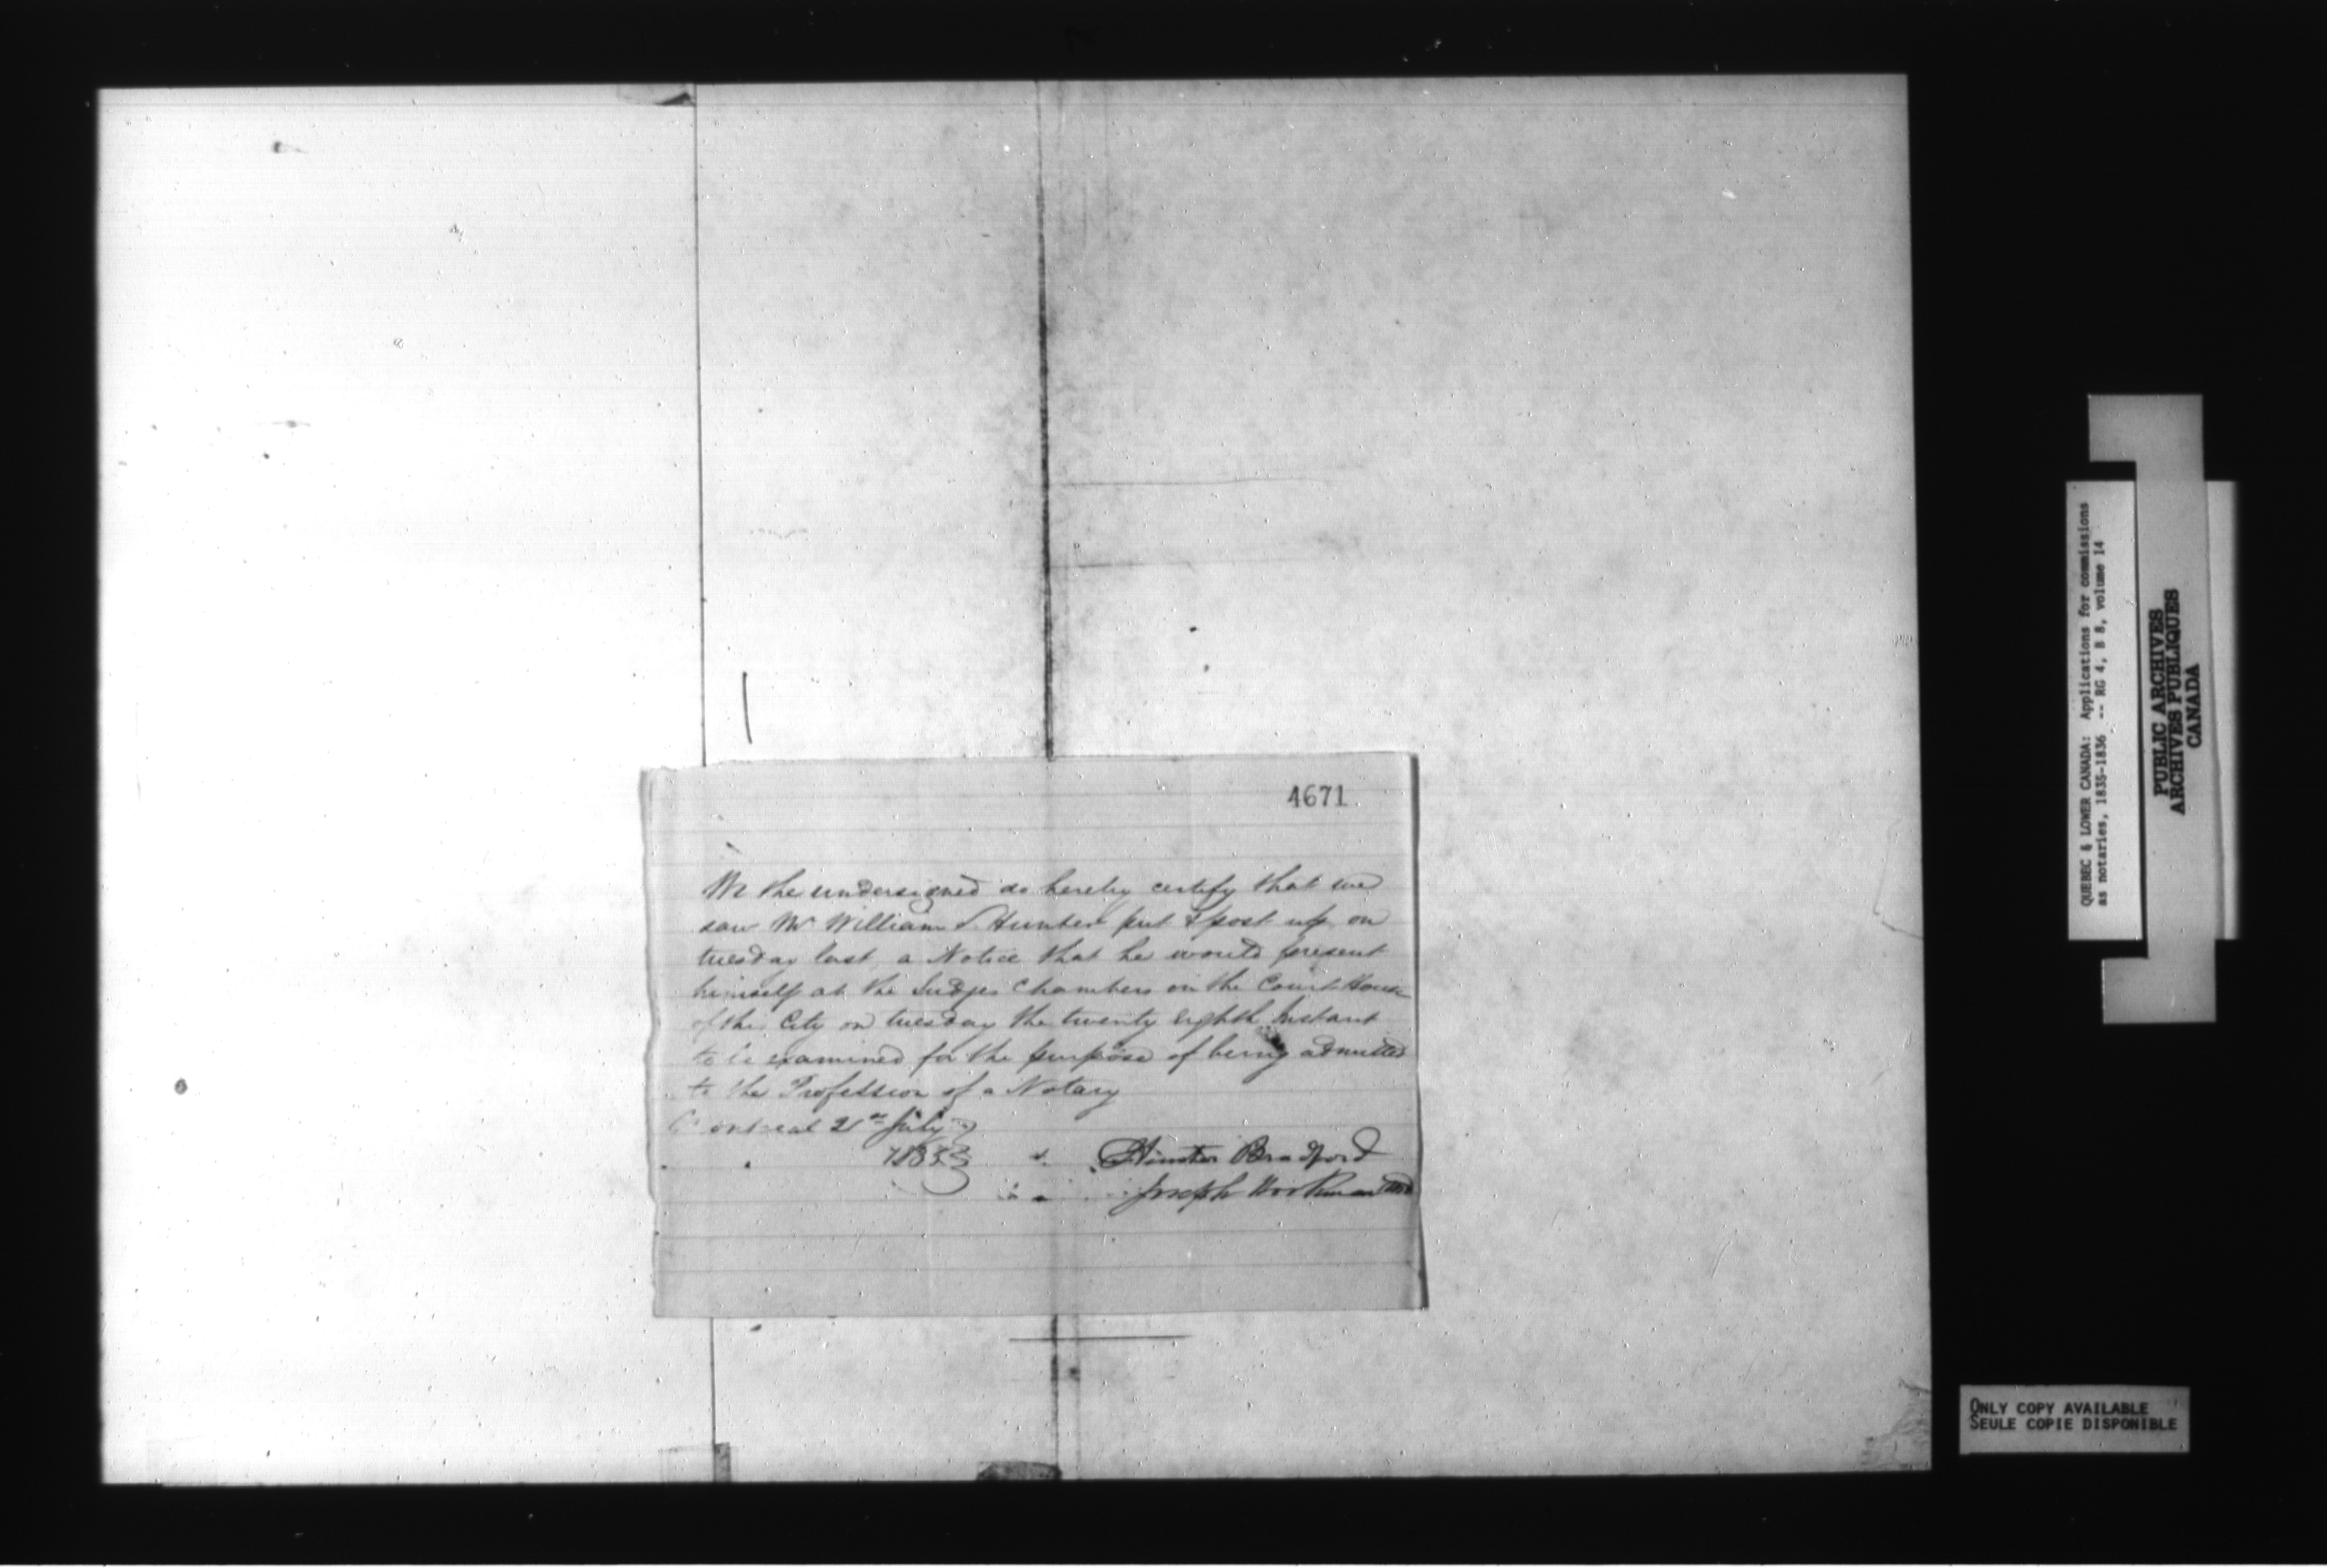 4671
We the undersigned do hereby certify that we
saw Mr William S. Hunter put & post up on
tuesday last, a Notice that he would present
himself at the Judges Chambers on the Court House
of the City on tuesday the twenty eighth Instant
to be examined for the purpose of being admitted
to the Profession of a Notary
Montreal 21st July
1835
Hunter Bradford
Joseph
QUEBEC & LOWER CANADA: Applications for commissions
as notaries, 1835-1836 -- RG 4, B 8, volume 14
PUBLIC ARCHIVES
ARCHIVES PUBLIQUES
CANADA
ONLY COPY AVAILABLE
SEULE COPIE DISPONIBLE